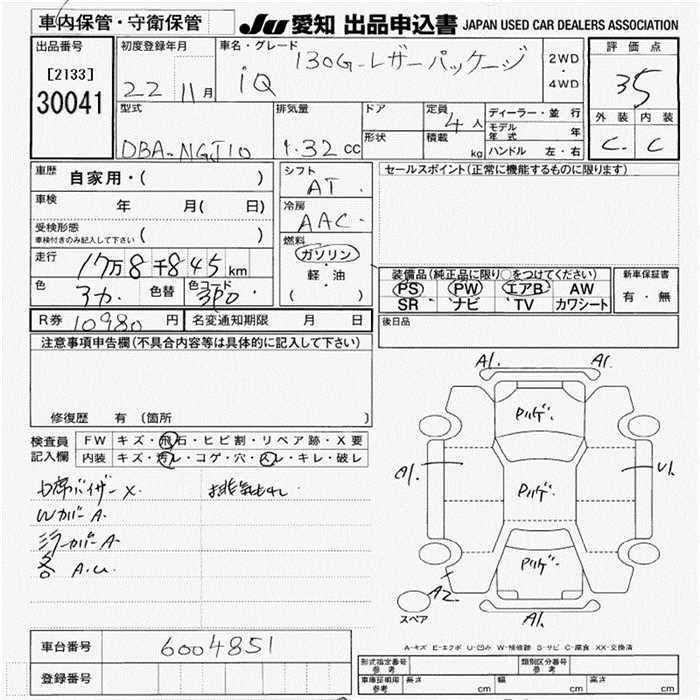 車内保管・守衛保管
JU 愛知 出品申込書 JAPAN USED CAR DEALERS ASSOCIATION
出品番号
[2133]
30041
初度登録年月
22 11月
車名・グレード
iQ 130G-レザーパッケージ
2WD
・
4WD
評価点
35
外装 内装
C. C
型式
DBA-NGJ10
排気量
1.32 cc
ドア
形状
定員 4人
積載 kg
ディーラー・並行
モデル年式 年
ハンドル 左・右
車歴 自家用・( )
車検 年 月( 日)
受検形態
車検付きのみ記入して下さい ( )
走行 17万8千845km
色 色替 色コード
シフト
AT.
冷房
AAC.
燃料
ガソリン
・
軽・油
( )
セールスポイント(正常に機能するものに限ります)
装備品(純正品に限り○をつけてください)
PS PW エアB AW
SR ナビ TV カワシート
新車保証書
有・無
R券 10980 円 名変通知期限 月 日
後日品
注意事項申告欄(不具合内容等は具体的に記入して下さい)
修復歴 有 (箇所
検査員
記入欄
FW キズ・飛石・ヒビ割・リペア跡・X要
内装 キズ・汚レ・コゲ・穴・スレ・キレ・破レ
排気もれ
Wカバー A.
ミラーカバー A.
各 A.U.
A1. A1.
A1. U1.
A2 A1.
スペア
A-キズ E-エクボ U-凹み W-補修跡 S-サビ C-腐食 XX-交換済
車台番号 6004851
登録番号
型式指定番号
参考
類別区分番号
参考
車庫証明用
参考
長さ cm 幅 cm 高さ cm